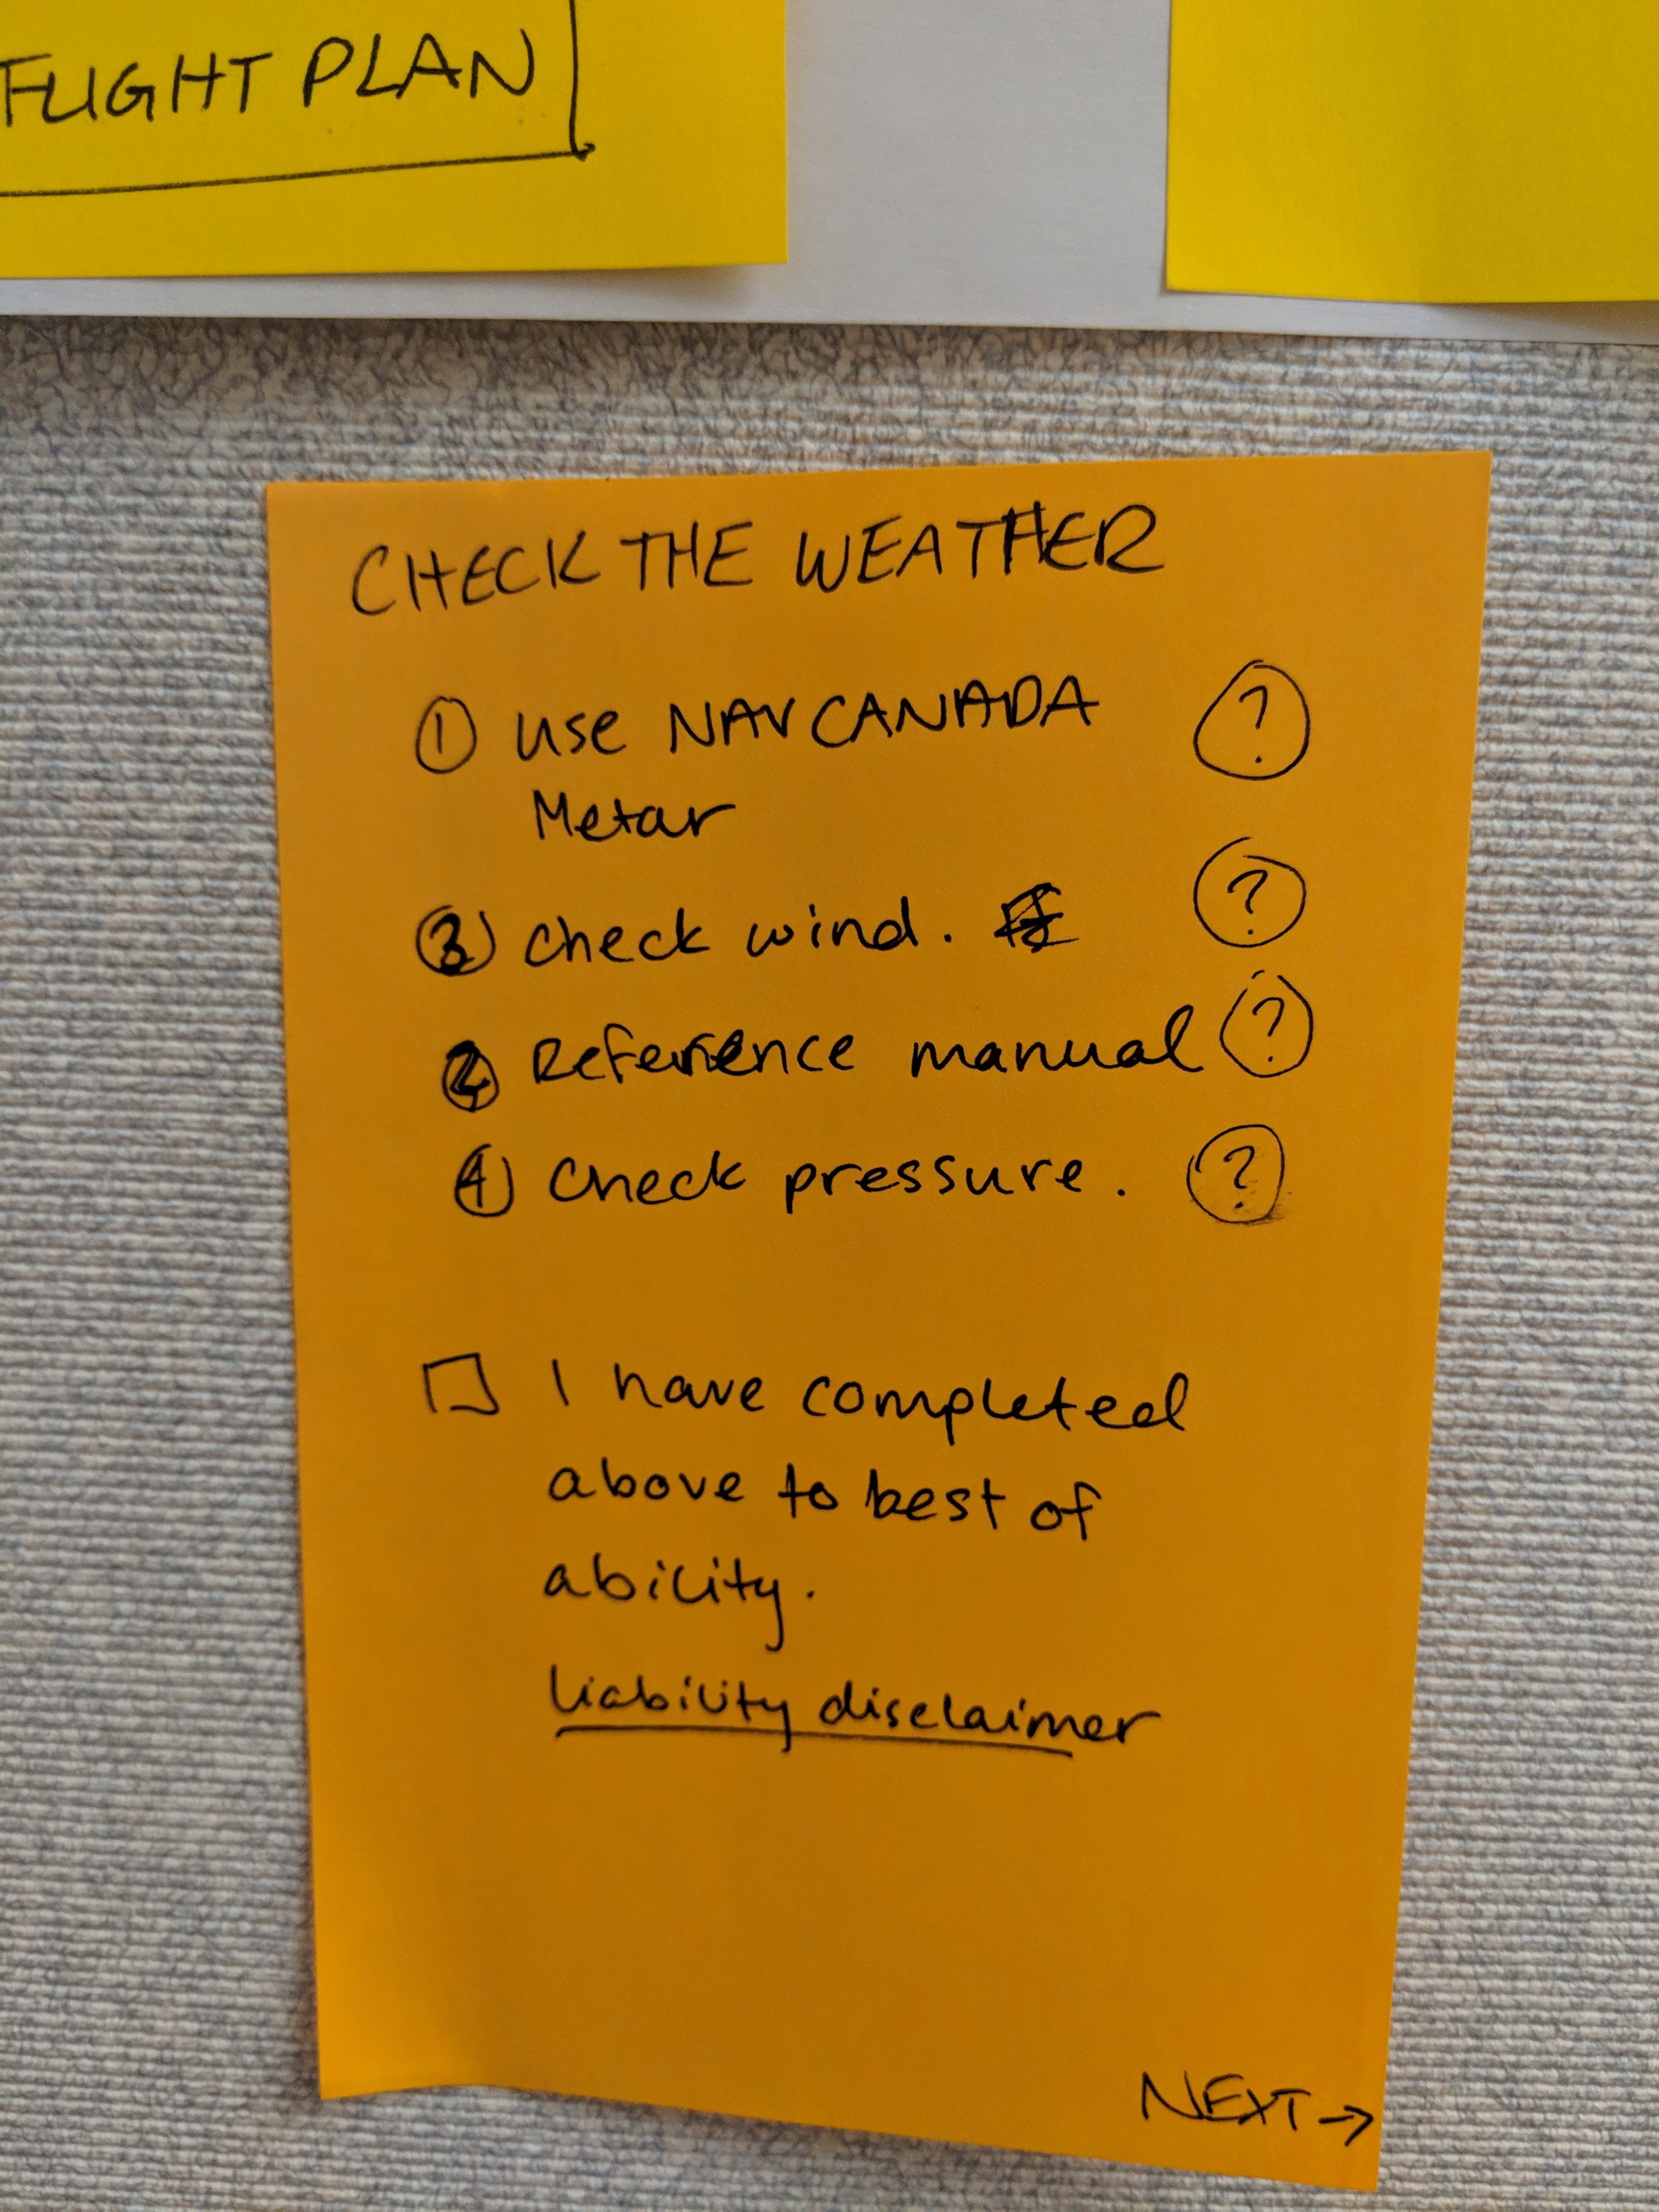 FLIGHT PLAN
CHECK THE WEATHER
① use NAV CANADA ?
Metar
③ check wind. ?
② Reference manual ?
④ check pressure. ?
☐ I have completed
above to best of
ability.
liability disclaimer
NEXT →